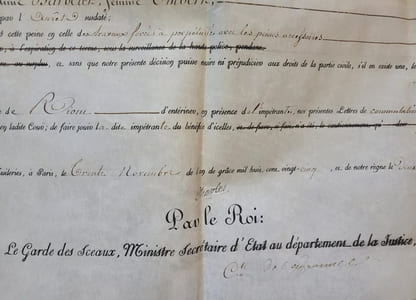 Barbelet, femme Imbert
par l'
cette peine en celle des travaux forcés à perpétuité avec les peines accessoires
à l'expiration de ce terme, sous la surveillance de la haute police, pendant
au surplus, et sans que notre présente décision puisse nuire ni préjudicier aux droits de la partie civile, s'il en existe une, le
de Riom d'entériner, en présence de l'impétrante, nos présentes Lettres de commutation
en ladite Cour; de faire jouir la dite impétrante du bénéfice d'icelles,
uileries, à Paris, le trente Novembre de l'an de grâce mil huit cent vingt-cinq, et de notre règne le
Charles
Par le Roi:
Le Garde des Sceaux, Ministre Secrétaire d'Etat au département de la Justice,
Cte de Peyronnet